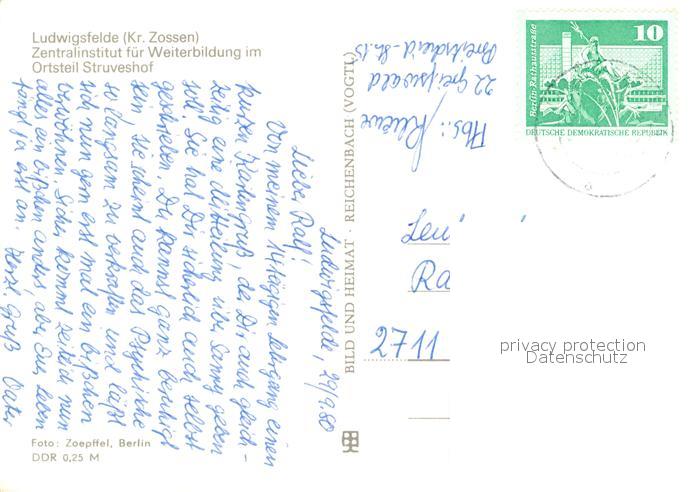 Ludwigsfelde (Kr. Zossen)
Zentralinstitut für Weiterbildung im
Ortsteil Struveshof
Ludwigsfelde, 29/9.80
Liebe, Ralf!
Von meinem 14tägigen Lehrgang einen
kurzen Kartengruß, der Dir auch gleich-
zeitig eine Mitteilung über Sanny geben
soll. Sie hat Dir sicherlich auch selbst
geschrieben. Du kannst ganz beruhigt
sein, sie scheint auch das Psychische
so langsam zu verkraften und läßt
sich nun gern erst mal ein bißchen
verwöhnen. Sicher kommt zeitlich nun
alles ein bißchen anders, aber Euer Leben
fängt ja erst an. Herzl. Gruß Vater
Foto: Zoepffel, Berlin
DDR 0,25 M
1
BILD UND HEIMAT · REICHENBACH (VOGTL)
Abs.:
22 Greifswald
Breitscheid-Str. 15
Berlin-Rathausstraße
10
DEUTSCHE DEMOKRATISCHE REPUBLIK
Ra
2711
privacy protection
Datenschutz